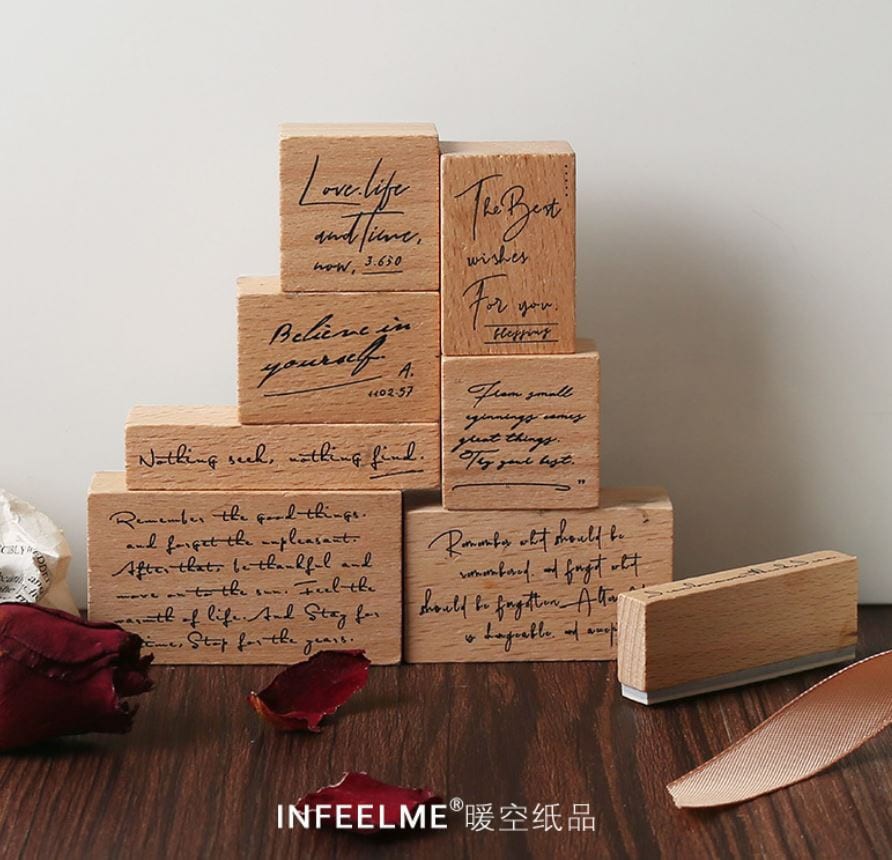 Love.life
and Time,
now, 3.650
The Best
wishes
For you.
blessing
Believe in
yourself.
A.
1102.57
From small
eginnings comes
great things.
Try your best.
Nothing seek, nothing find.
Remember the good things.
and forget the unpleasant.
After that, be thankful and
move on to the sun. Feel the
warmth of life. And Stay for
time, Stop for the years.
Remember what should be
remembered, and forget what
should be forgotten. Alter
is changeable, and accep
INFEELME®暖空纸品